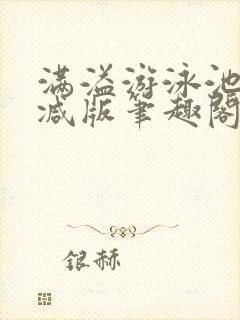 满溢游泳池
减版笔趣阁
银赫